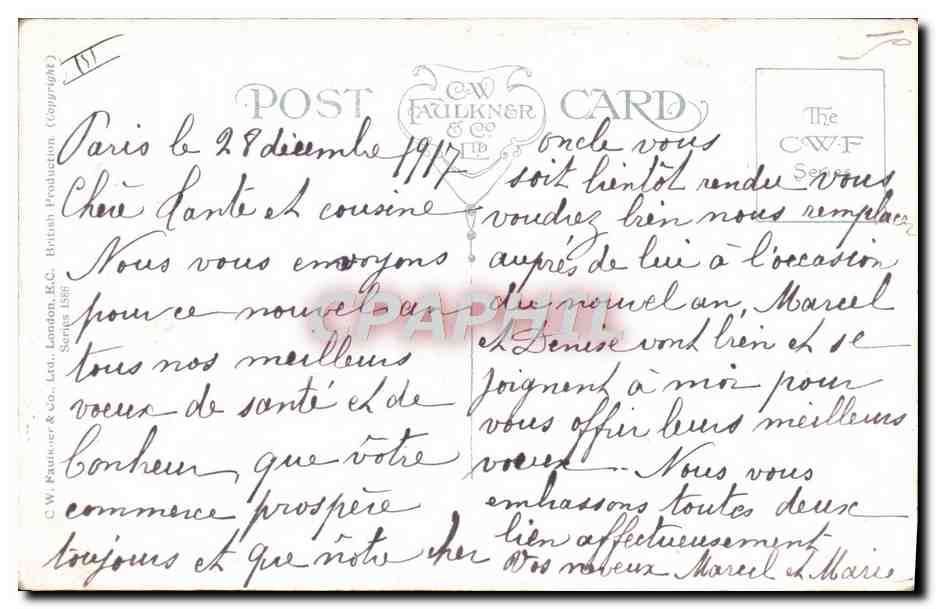 POST CARD
C.W.
FAULKNER
& Co
LTD
The
C.W.F
Series
C. W. Faulkner & Co., Ltd., London, E.C. British Production. (Copyright)
Series 1586
Paris le 28 décembre 1917
Chère tante et cousine
Nous vous envoyons
pour ce nouvel an
tous nos meilleurs
voeux de santé et de
bonheur, que vôtre
commerce prospère
toujours et que nôtre cher
oncle vous
soit bientôt rendu, vous
voudrez bien nous remplacer
auprès de lui à l'occasion
du nouvel an, Marcel
et Denise vont bien et se
joignent à moi pour
vous offrir leurs meilleurs
voeux. Nous vous
embrassons toutes deux
bien affectueusement
Vos neveux Marcel et Marie
CPAPHIL